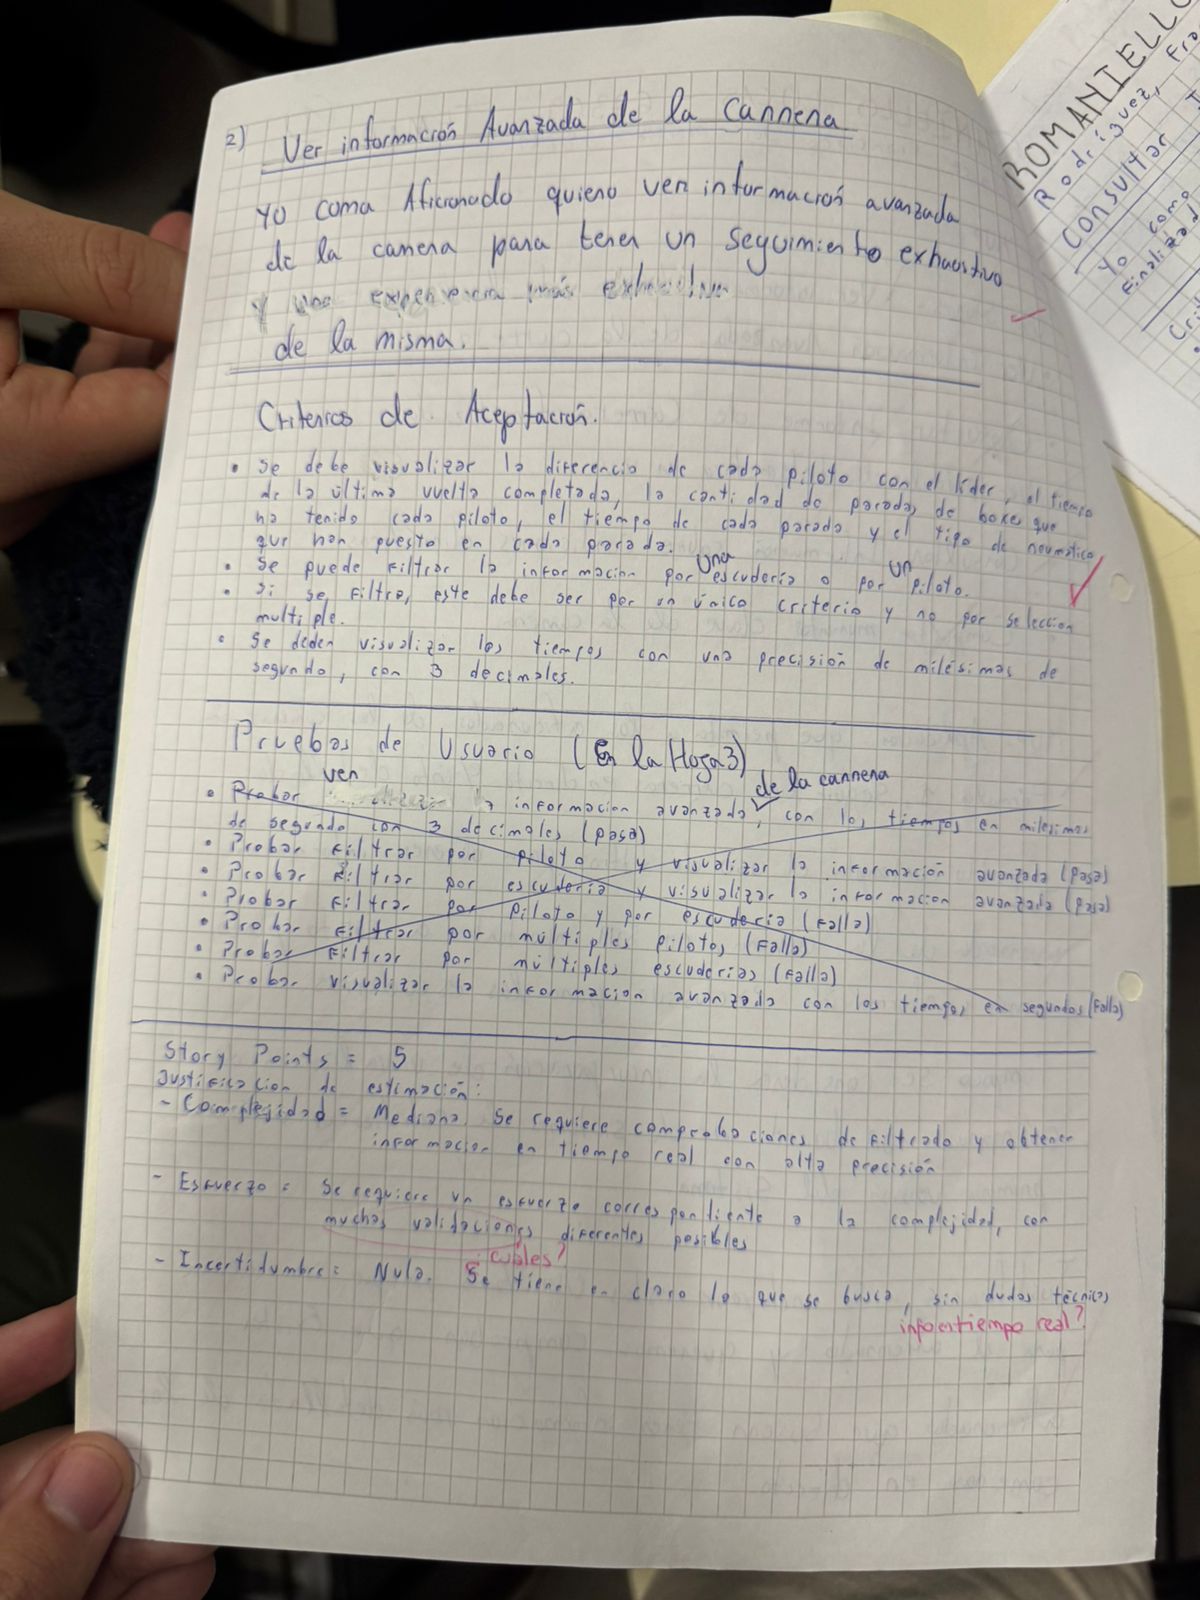 2) Ver información Avanzada de la Carrera
Yo como Aficionado quiero ver información avanzada
de la carrera para tener un seguimiento exhaustivo
y una experiencia más
de la misma.
Criterios de Aceptación.
• Se debe visualizar la diferencia de cada piloto con el líder, el tiempo
de la última vuelta completada, la cantidad de paradas de boxes que
ha tenido cada piloto, el tiempo de cada parada y el tipo de neumático
que han puesto en cada parada.
• Se puede filtrar la informacion por una escudería o por un piloto.
• Si se filtra, este debe ser por un único criterio y no por seleccion
multiple.
• Se deden visualizar los tiempos con una precisión de milésimas de
segundo, con 3 decimales.
Pruebas de Usuario (En la Hoja 3)
• Probar ver la informacion avanzada de la carrera, con los tiempos en milesimas
de segundo con 3 decimales (pasa)
• Probar filtrar por piloto y visualizar la informacion avanzada (pasa)
• Probar filtrar por escuderia y visualizar la informacion avanzada (pasa)
• Probar filtrar por piloto y por escuderia (Falla)
• Probar filtrar por múltiples pilotos (Falla)
• Probar filtrar por múltiples escuderias (Falla)
• Probar visualizar la informacion avanzada con los tiempos en segundos (Falla)
Story Points = 5
Justificacion de estimación:
- Complejidad = Mediana. Se requiere comprobaciones de filtrado y obtener
informacion en tiempo real con alta precisión
- Esfuerzo = Se requiere un esfuerzo correspondiente a la complejidad, con
muchas validaciones diferentes posibles
cuáles?
- Incertidumbre = Nula. Se tiene en claro lo que se busca, sin dudas técnicas
info en tiempo real?
ROMANIELLO
Rodríguez, Fra
Consultar
Yo como
finalizad
Crit